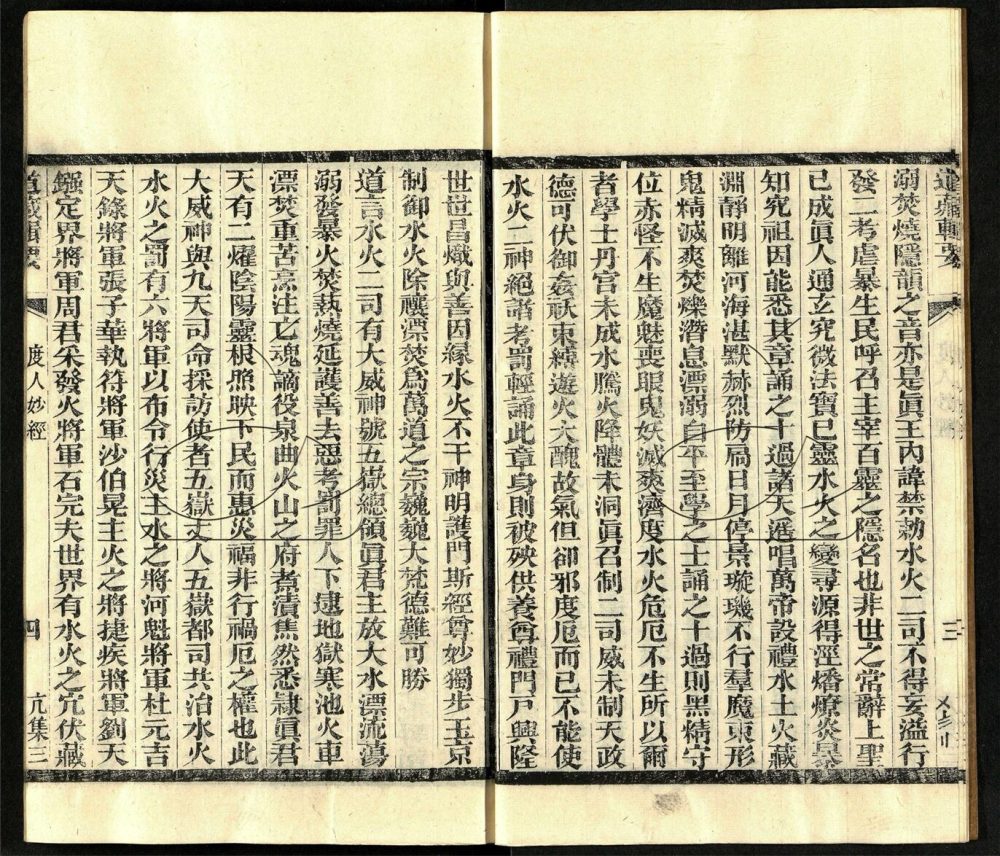 道藏輯要
溺焚燒隱韻之音亦是眞王內諱禁勑水火二司不得妄溢行
發二考虐暴生民呼召主宰百靈之隱名也非世之常辭上聖
已成眞人通玄究微法寶已靈水火之變尋源得涇燔燎炎暴
知究祖因能悉其章誦之十過諸天遙唱萬帝設禮水土火藏
淵靜明離河海湛默赫烈防局日月停景璇璣不行羣魔束形
鬼精滅爽焚爍潛息漂溺自平至學之士誦之十過則黑精守
位赤怪不生魔魅喪眼鬼妖滅爽濟度水火危厄不生所以爾
者學士丹宮未成水騰火降體未洞眞召制二司威未制天政
德可伏御姦祅束縛遊火大醜故氣但卻邪度厄而已不能使
水火二神絕諸考罰輕誦此章身則被殃供養尊禮門戶興隆
三
世世昌熾與善因緣水火不干神明護門斯經尊妙獨步玉京
制御水火除禳漂焚爲萬道之宗巍巍大梵德難可勝
道言水火二司有大威神號五嶽總領眞君主放大水漂流蕩
溺發暴火焚熱燒延護善去惡考罰罪人下逮地獄寒池火車
漂焚重苦烹注亡魂謫役泉曲火山之府煮漬焦然悉隸眞君
天有二燿陰陽靈根照映下民而惠災福非行禍厄之權也此
大威神與九天司命採訪使者五嶽丈人五嶽都司共治水火
水火之罰有六將軍以布令行災主水之將河魁將軍杜元吉
天錄將軍張子華執符將軍沙伯晃主火之將捷疾將軍劉天
鏹定界將軍周君朱發火將軍石完夫世界有水火之宂伏藏
道藏輯要
度人妙經
四
亢集三